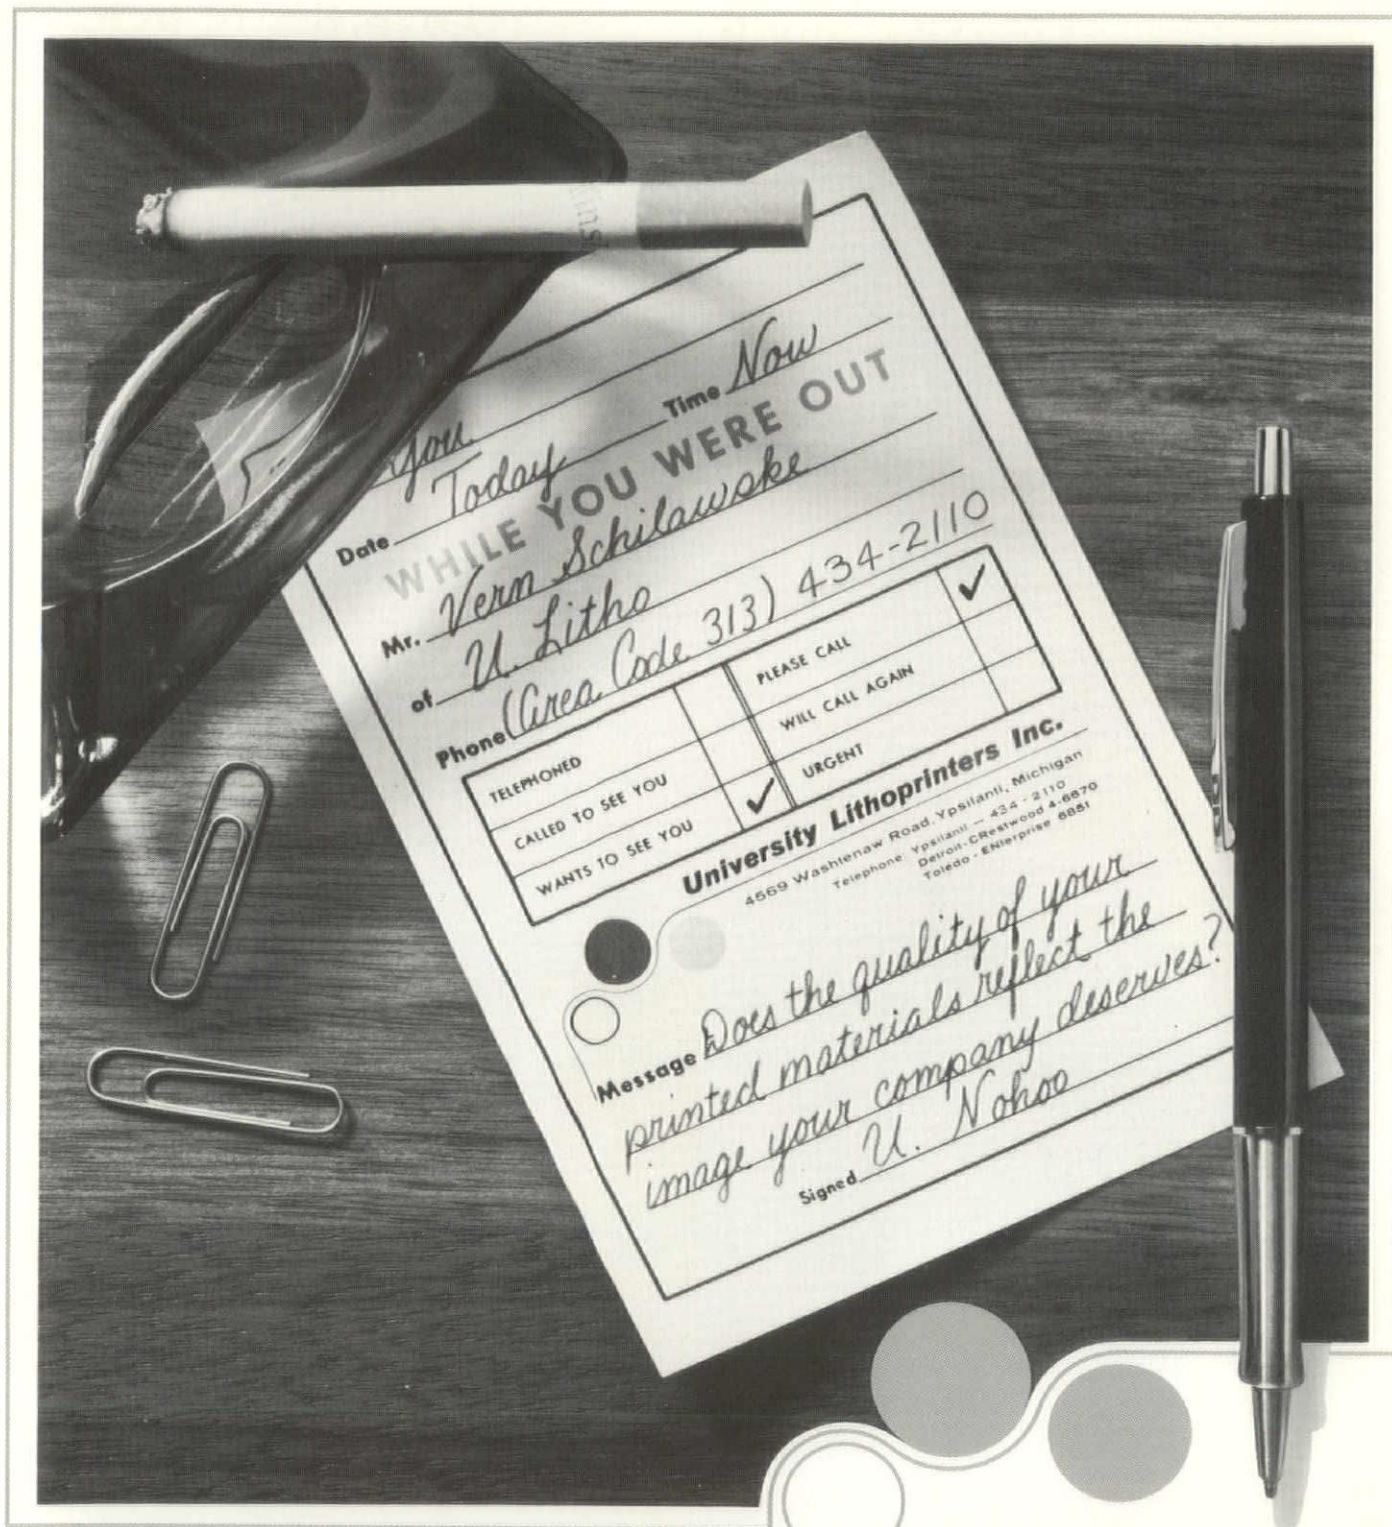 You
Date Today Time Now
WHILE YOU WERE OUT
Mr. Vern Schilawske
of U. Litho
Phone (Area Code 313) 434-2110
TELEPHONED PLEASE CALL ✓
CALLED TO SEE YOU WILL CALL AGAIN
WANTS TO SEE YOU ✓ URGENT
University Lithoprinters Inc.
4569 Washtenaw Road, Ypsilanti, Michigan
Telephone: Ypsilanti — 434-2110
Detroit-CRestwood 4-6670
Toledo-ENterprise 6851
Message Does the quality of your
printed materials reflect the
image your company deserves?
Signed U. Nohoo